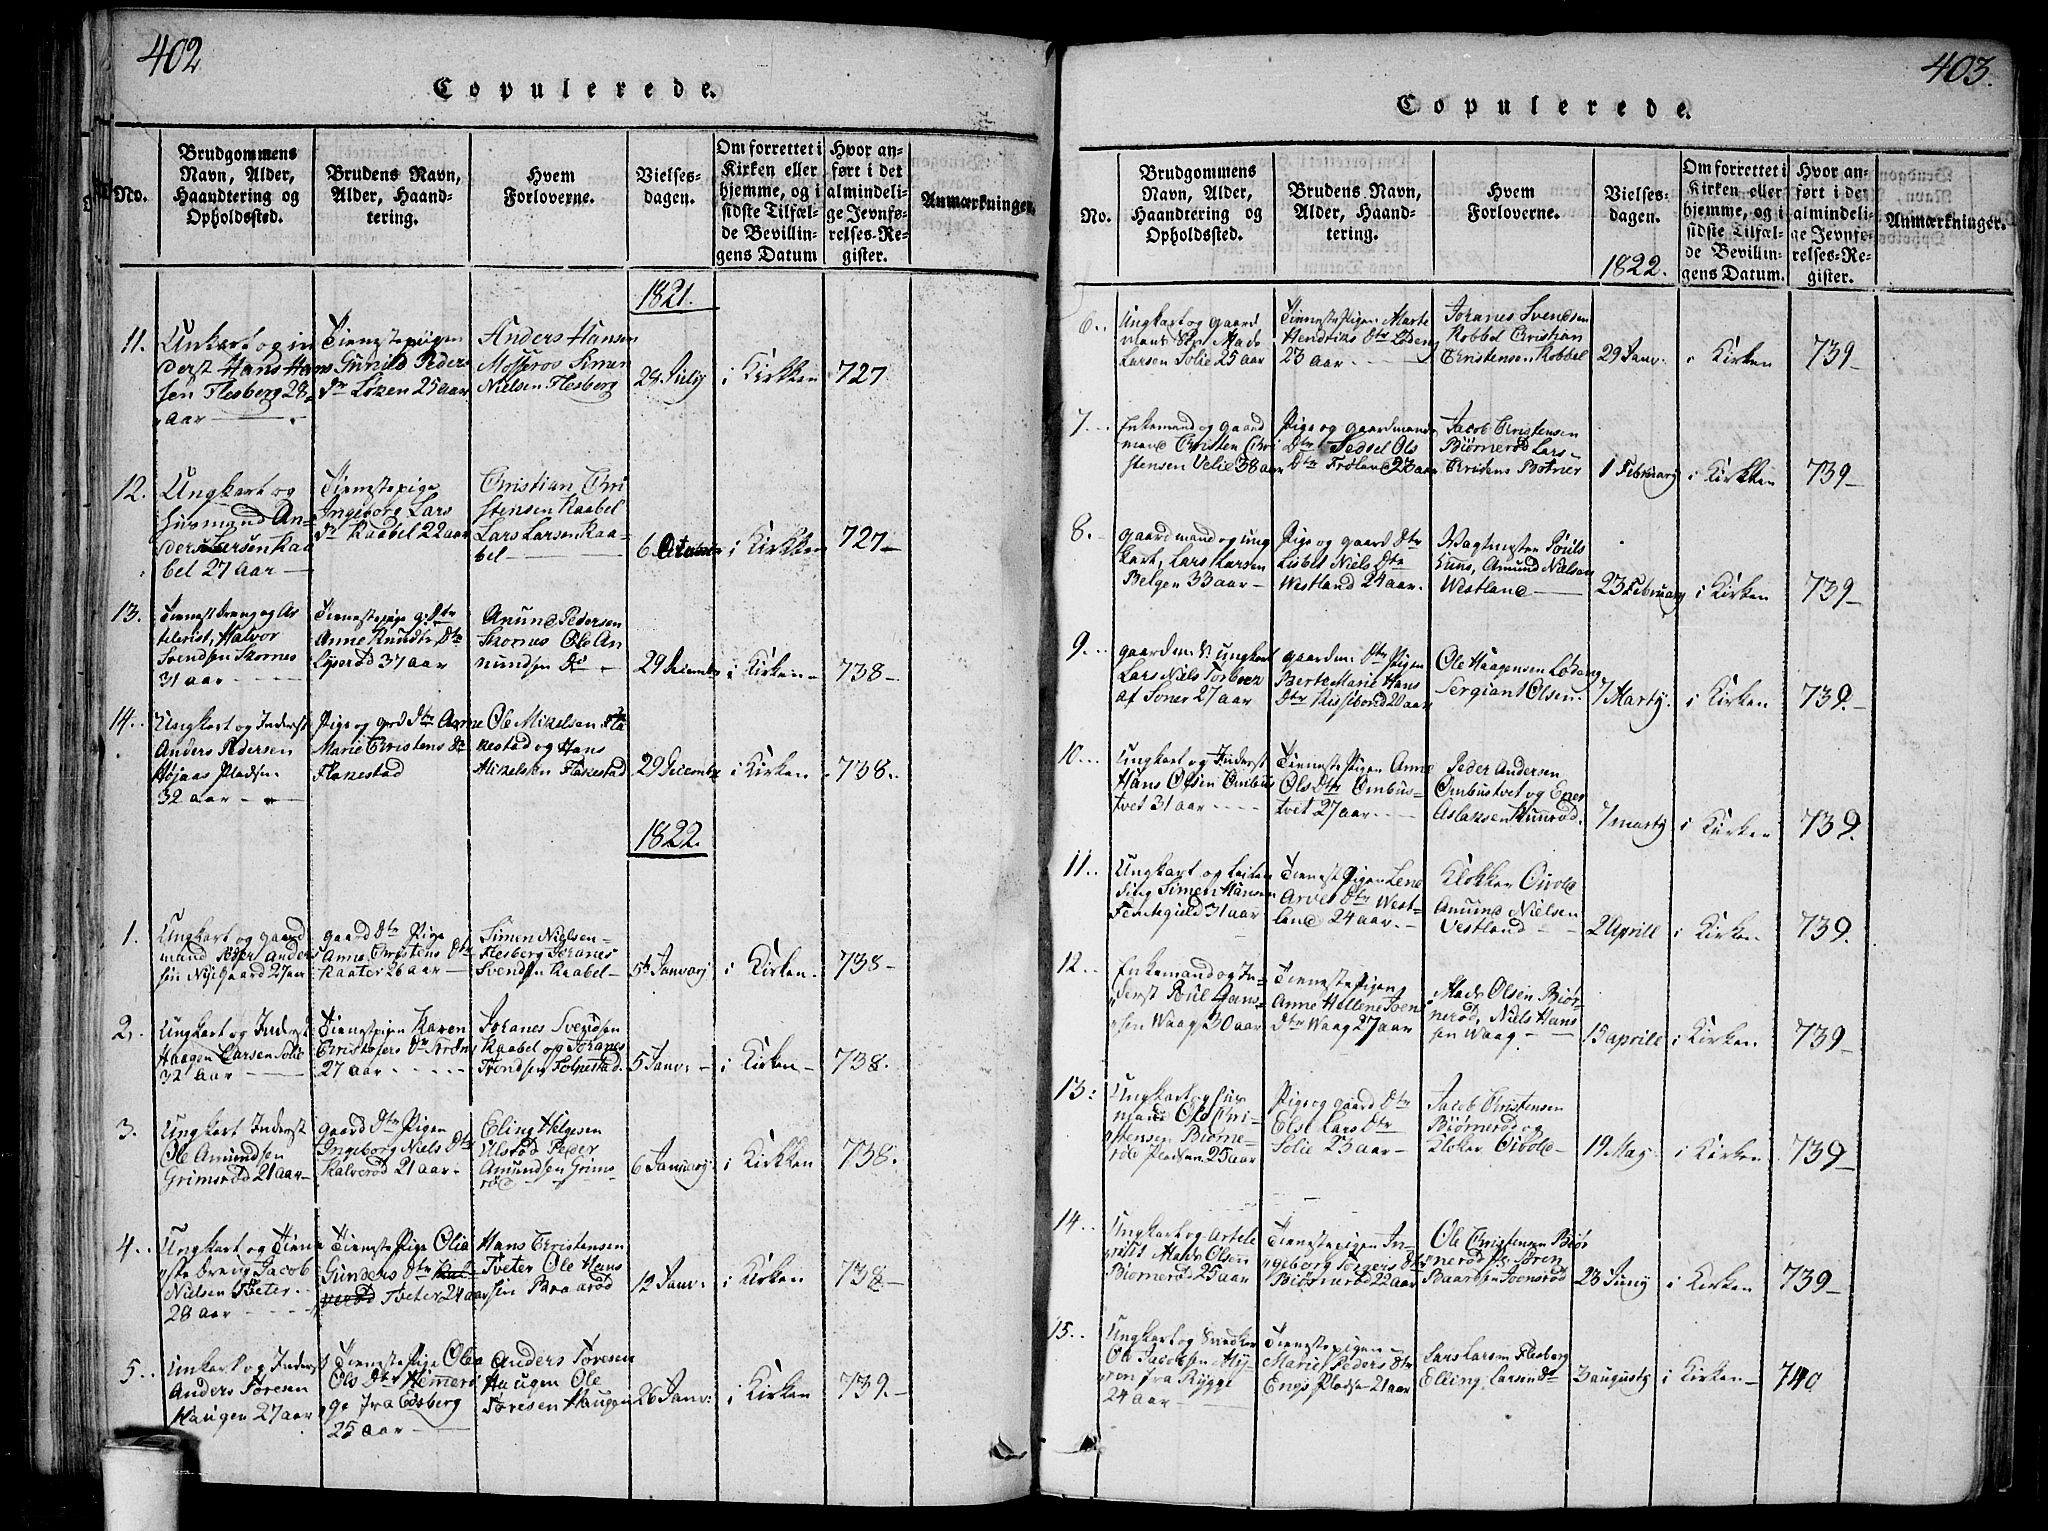 402
Copulerede.
No.
Brudgommens
Navn, Alder,
Haandtering og
Opholdssted.
Brudens Navn,
Alder, Haand-
tering.
Hvem
Forloverne.
Vielses-
dagen.
Om forrettet i
Kirken eller
hjemme, og i
sidste Tilfæl-
de Bevillin-
gens Datum
Hvor an-
ført i det
almindeli-
ge Jevnfø-
relses-Re-
gister.
Anmærkninger.
1821.
11.
Unkart og in
derst Hans Han
sen Flesberg 28
aar
Tienestepigen
Gunild Peders
Dr Løken 25 aar
Anders Hansen
Mosseros Simen
Nielsen Flesberg
28 July
i Kirkken
727
12.
Ungkart og
Huusmand An-
ders Larsen Raa
bel 27 aar
Tienestepige
Ingeborg Lars
Dr Raabel 22 aar
Christian Chri
stensen Raabel
Lars Larsen Raa-
bel
6
i Kirkken
727
13.
Tienestdreng og Ar
tilerist, Halvor
Svendsen Skornes
31 aar
Tienestepige g: Dtr
Anne Knudts Dtr
Lyserød 37 aar
Anund Pedersen
Skornes Ole An-
nundsen Do
29 Decembr
i Kirken
738
14.
Ungkart og Inderst
Anders Pedersen
Højaas Pladsen
32 aar
Pige og gard Dtr Anne
Marie Christens Dr
Flakestad
Ole Mikelsen Fla
kestad og Hans
Mikelsen Flakestad
29 Decembr
i Kirken
738.
1822.
1.
Ungkart og gaard
mand Peder Anders
sen Nygaard 27 aar
gaard Dtr Pige
Anne Christens Dtr
Raater 26 aar
Simen Nielsen
Flesberg Johanes
Svendsen Raabel
5t Januarj
i Kirken
738
2.
Ungkart og Inderst
Haagen Larsen Solie
32 aar
Tienestpigen Karen
Christofers Dr
27 aar
Johanes Svendsen
Raabel og Johanes
Trondsen Folkestad.
5 Janv:
i Kirken
738.
3.
Ungkart Inderst
Ole Amundsen
Grimsrød 21 aar
gaard Dtr Pigen
Ingeborg Niels Dtr
Kalverød 21 aar
Elling Helgesen
Ulsrød Peder
Amundsen Grims
rød
6 Januarj
i Kirkken
738.
4.
Ungkart og Tiene
ste dreng Jacob
Nielsen Tveter
28 aar
Tieneste Pige Olia
Gunders Dtr Kal-
verød Tveter 24 aar
Hans Christensen
Tveter Ole Hans
sen Braarød
12 Janv:
i Kirken
738
5.
Unkart og Inderst
Anders Toresen
Haugen 27 aar
Tieneste Pige Olea
Ols Dtr Hemeri
ge fra Edsberg
25 aar
Anders Toresen
Haugen Ole
Toresen Haugen
26 Janv:
i Kirken
739.
403.
Copulerede.
No.
Brudgommens
Navn, Alder,
Haandtering og
Opholdssted.
Brudens Navn,
Alder, Haand-
tering.
Hvem
Forloverne.
Vielses-
dagen.
1822.
Om forrettet i
Kirken eller
hjemme, og i
sidste Tilfæl-
de Bevillin-
gens Datum.
Hvor an-
ført i det
almindeli-
ge Jevnfø-
relses-Re-
gister.
Anmærkninger.
6.
Ungkart og gaard
mand Mads
Larsen Solie 25 aar
Tieneste Pigen Marte
Hendriks Dtr Lødeng
23 aar
Johanes Svendsen
Robbel Christian
Christensen Robbel
29 Janv:
i Kirken
739
7.
Enkemand og gaard
mand Christen Chri
stensen Velie 38 aar
Pige og gaardmands
Dtr Sedsel Ols
Dtr Froland 23 aar
Jacob Christensen
Biørnerød Lars
Christens Botner
1 Februarj
i Kirkken
739
8.
gaardmand og ung
kart, Lars Larsen
Belgen 33 aar
Pige og gaard Dtr
Lisbet Niels Dtr
Westland 24 aar.
Wagtmester Pouls
Amund Nielsen
Westland
23 Februarj
i Kirken
739
9.
gaardm: & ungkart
Lars Niels Torbern
af Soner 27 aar
gaardm: Dtr Pigen
Berte Marie Hans
Dtr Rissebond 20 aar
Ole Haagensen Lødeng
Sergiant Olsen.
7 Marty.
i Kirken
739.
10.
Ungkart og Inderst
Hans Olsen Ombus
tvet 31 aar
Tieneste Pigen Anne
Ols Dtr Ombus-
tvet 27 aar.
Peder Andersen
Ombustvet og Ener
Aslaksen
7 marty
i Kirken
739.
11.
Ungkart og
Simen Hansen
31 aar
Tieneste Pigen Lene
Arves Dtr West-
land 24 aar.
Klokker Oivold
Anund Nielsen
Vestland
2 Aprill
i Kirken
739.
12.
Enkemand og In-
derst Poul Jans-
sen Waag 30 aar
Tieneste Pigen
Anne Hellene Sven
Dtr Waag 27 aar
Mads Olsen Biør-
nerød, Niels Hans
sen Waag
15 aprill
i Kirken
739
13.
Ungkart og huus
mand Ole Chri-
stensen Biørne-
rød Pladsen 25 aar
Pige og gaard Dtr
Else Lars Dtr
Solie 23 aar
Jacob Christensen
Biørnerød og
Kloker Oivold
19 May
i Kirken
739
14.
Ungkart og Artele
rist Mads Olsen
Biørnerød 25 aar
Tieneste Pigen In-
geborg Torgers Dtr
Biørnerød 22 aar
Ole Christensen Biør
nerød Søren
Baardsen Joonsrød
23 Juny
i Kirken
739
15.
Ungkart og Snedker
Ole Jacobsen My-
ren fra Rygge
24 aar
Tienestepigen
Marie Peders Dtr
Engs Pladsen 21 aar
Lars Larsen Flesberg
Elling Larsen Do
3 augusty
i Kirken
740